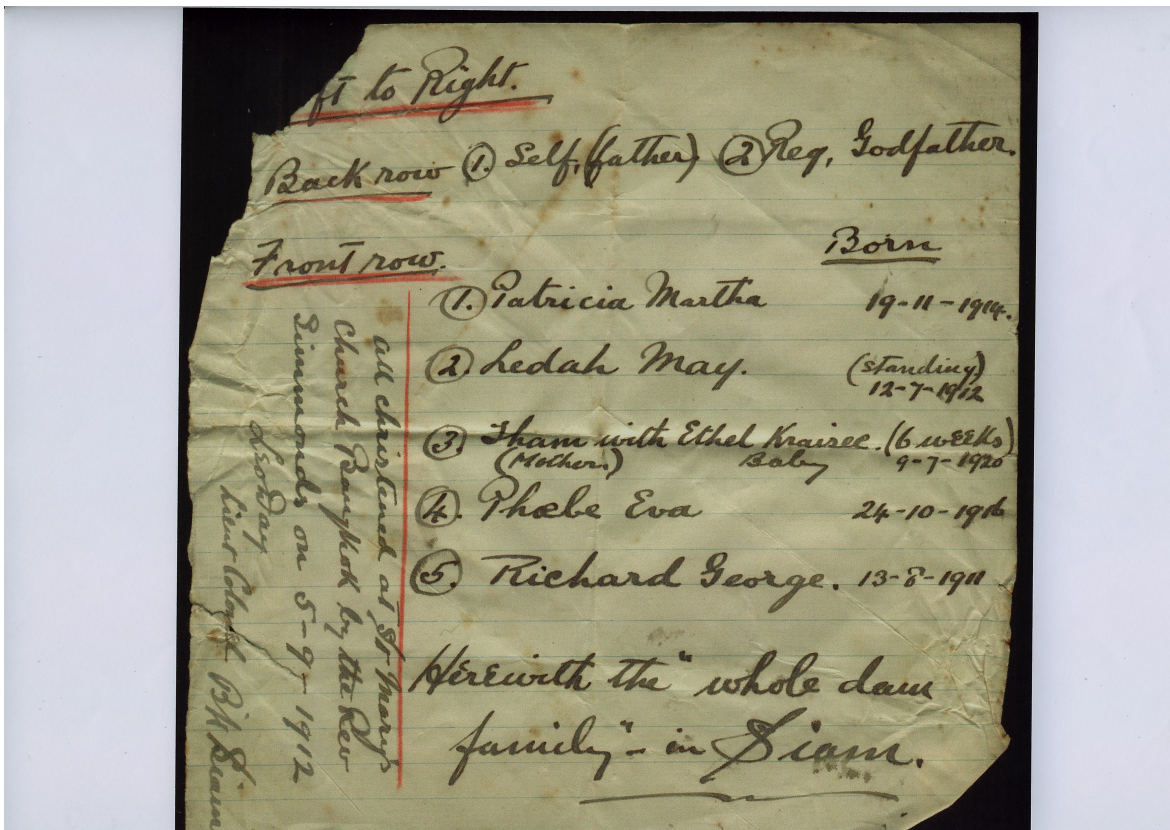 ft to Right.
Back row ① Self, (father) ② Reg, Godfather.
Front row.
Born
① Patricia Martha 19-11-1914.
② Ledah May. (standing)
12-7-1912
③ Tham with Ethel Kraisee. (6 weeks)
(Mother) Baby 9-7-1920
④ Phœbe Eva 24-10-1916
⑤ Richard George. 13-8-1911
Herewith the "whole dam
family" - in Siam.
all christened at St Mary's
Church Bangkok by the Rev
Simmonds on 5-9-1912
Leo Day
Lieut Colonel B'k Siam